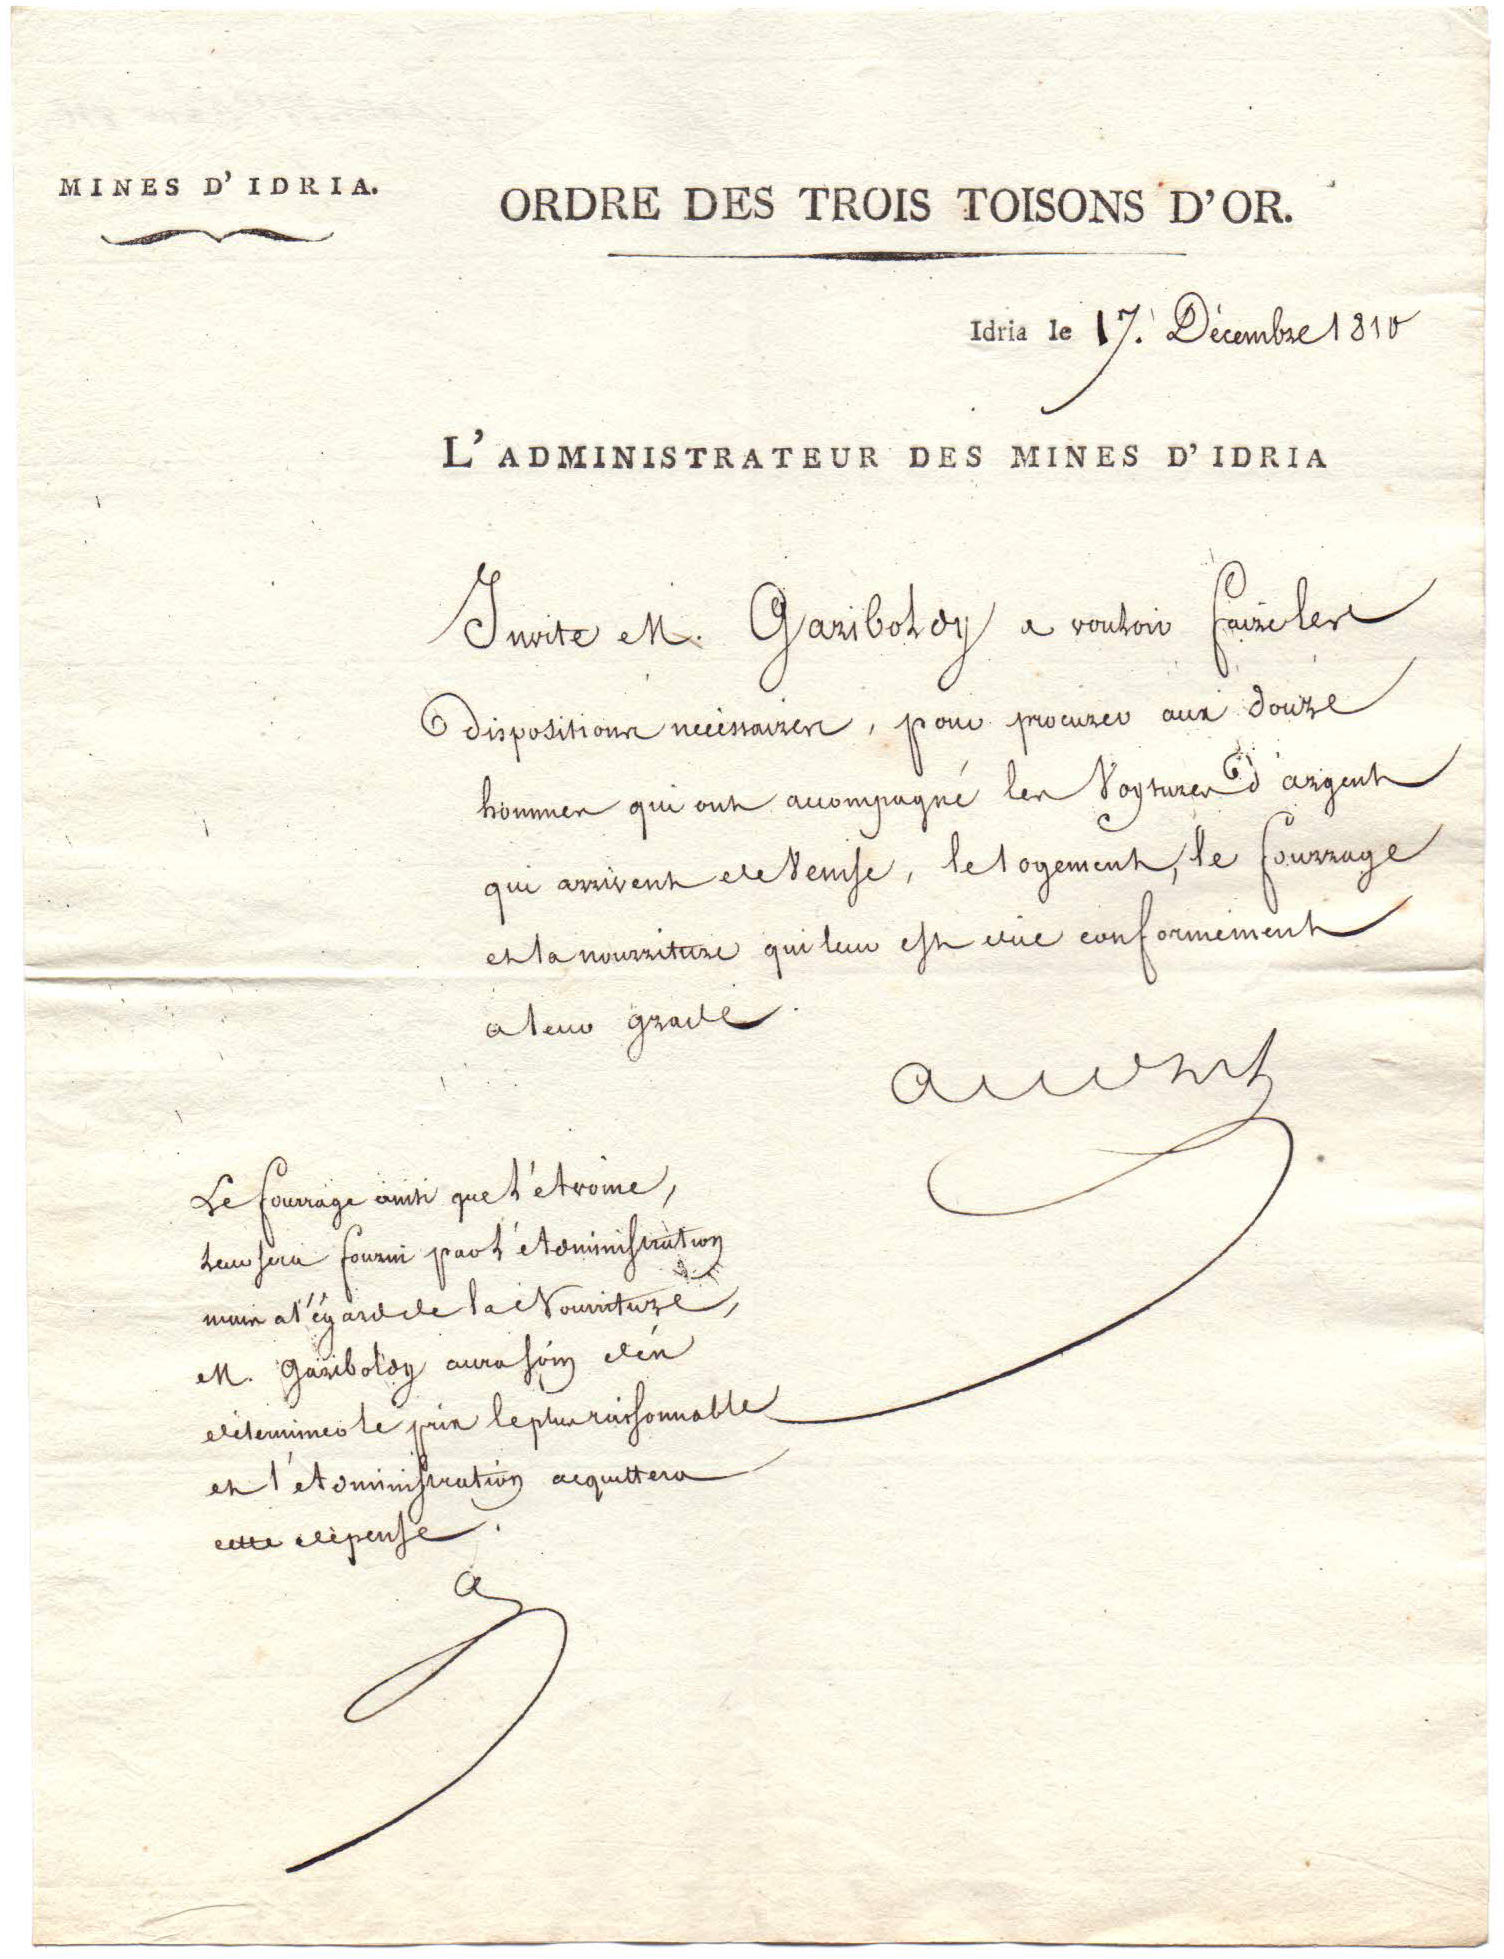 MINES D'IDRIA.
ORDRE DES TROIS TOISONS D'OR.
Idria le 17. Décembre 1810
L'ADMINISTRATEUR DES MINES D'IDRIA
Invite M. Gariboldy a vouloir faire les
dispositions nécessaires, pour procurer aux douze
hommes qui ont accompagné les Voytures d'argent
qui arrivent de Venise, le logement, le fourrage
et la nourriture qui leur est due conformément
a leur grade.
Le fourrage ainsi que l'Avoine,
leur sera fourni par l'Administration
mais a l'égard de la Nourriture,
M. Gariboldy aura soin d'en
déterminer le prix le plus raisonnable
et l'Administration acquittera
cette dépense.